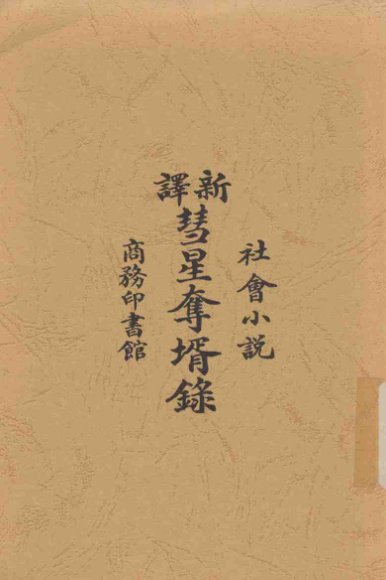 社會小説
新譯
彗星奪壻錄
商務印書館